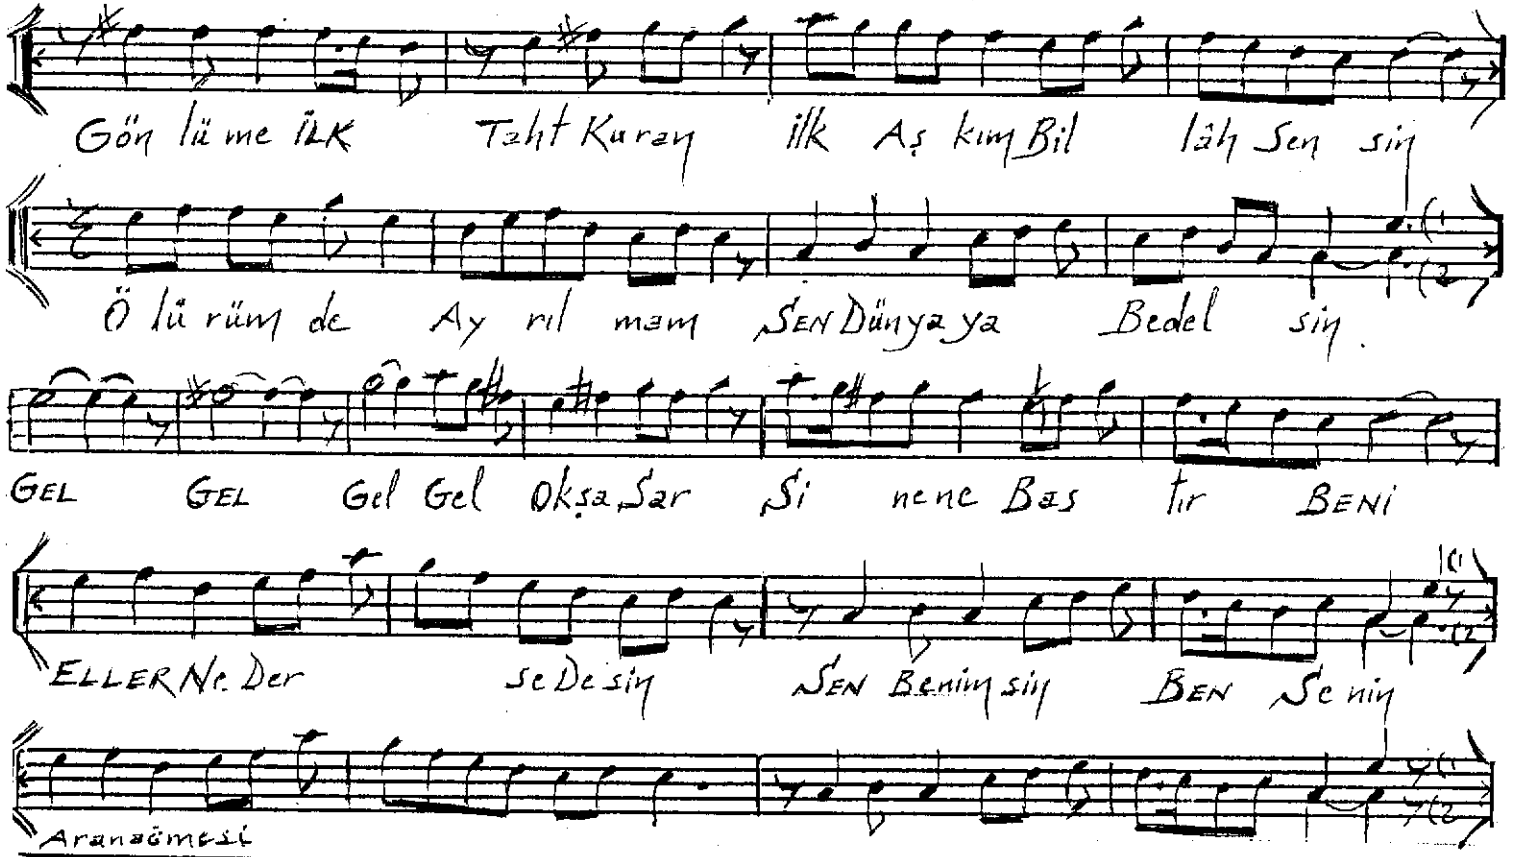 Gön lü me İLK Taht Kuran ilk Aş kım Bil lâh Sen sin
Ö lü rüm de Ay rıl mam SEN Dünya ya Bedel sin.
GEL GEL Gel Gel Okşa Sar Si nene Bas tır BENİ
ELLER Ne Der se De sin SEN Benim sin BEN Se nin
Aranağmesi